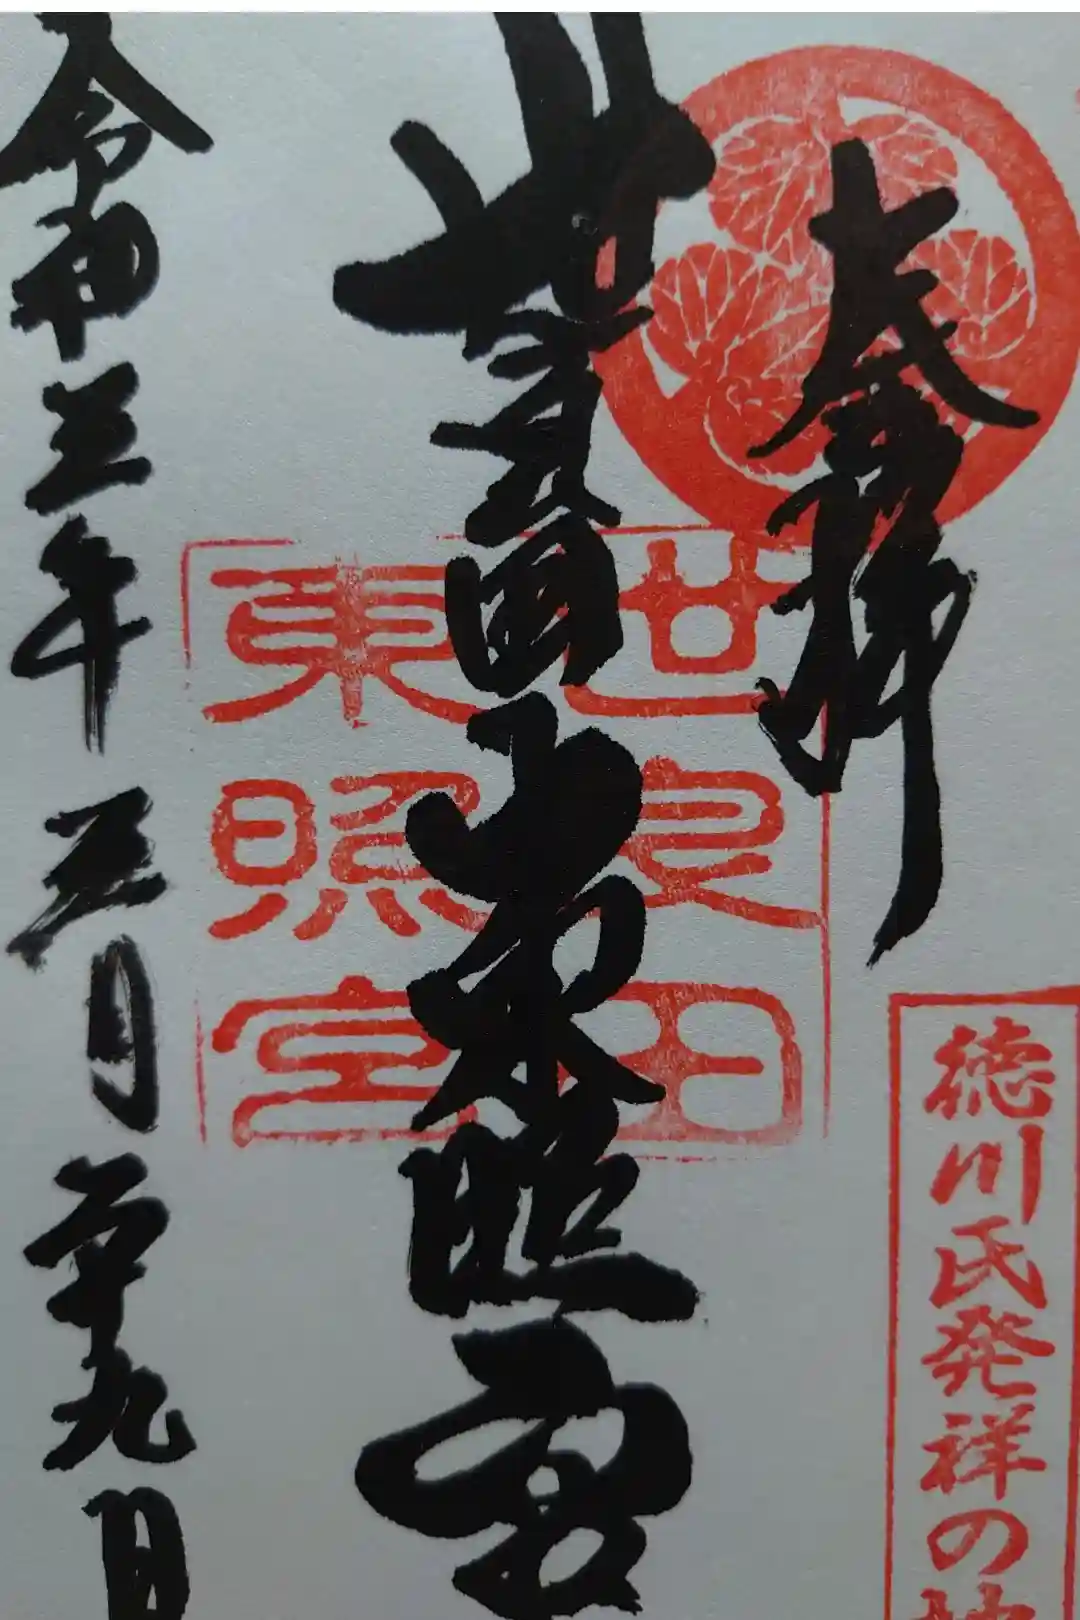 奉拝
徳川氏発祥の地
世良田
東照宮
世良田東照宮
令和三年五月二十九日